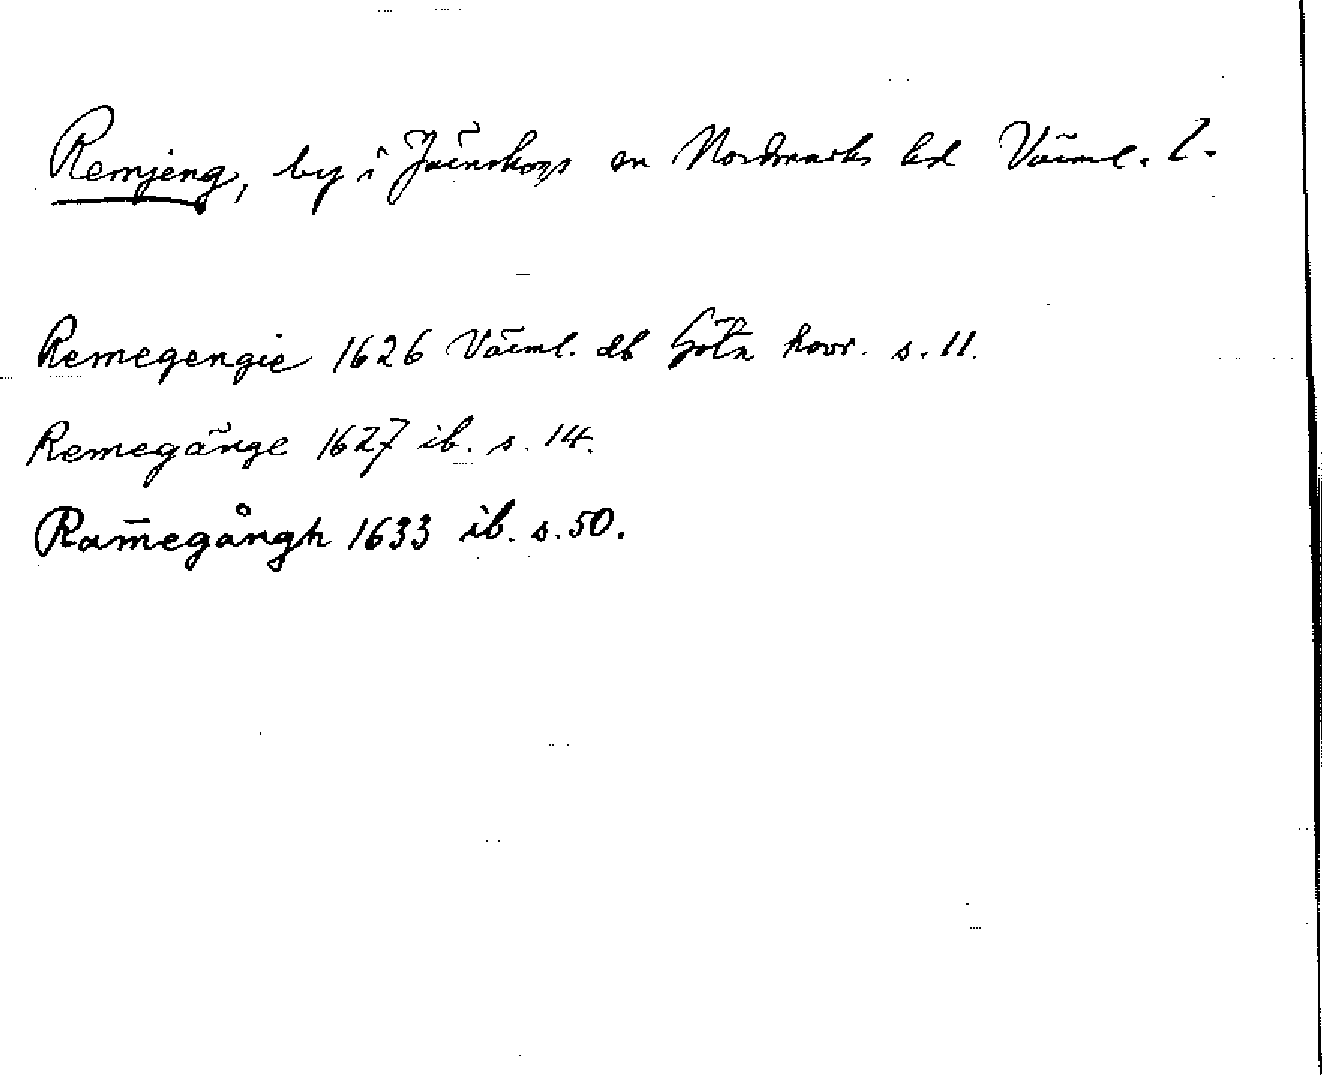 Remjeng, by i Järnskogs sn Nordmarks hd Värml. l.
Remegengie 1626 Värml. db Göta hovr. s. 11.
Remegänge 1627 ib. s. 14.
Ram̅egångh 1633 ib. s. 50.